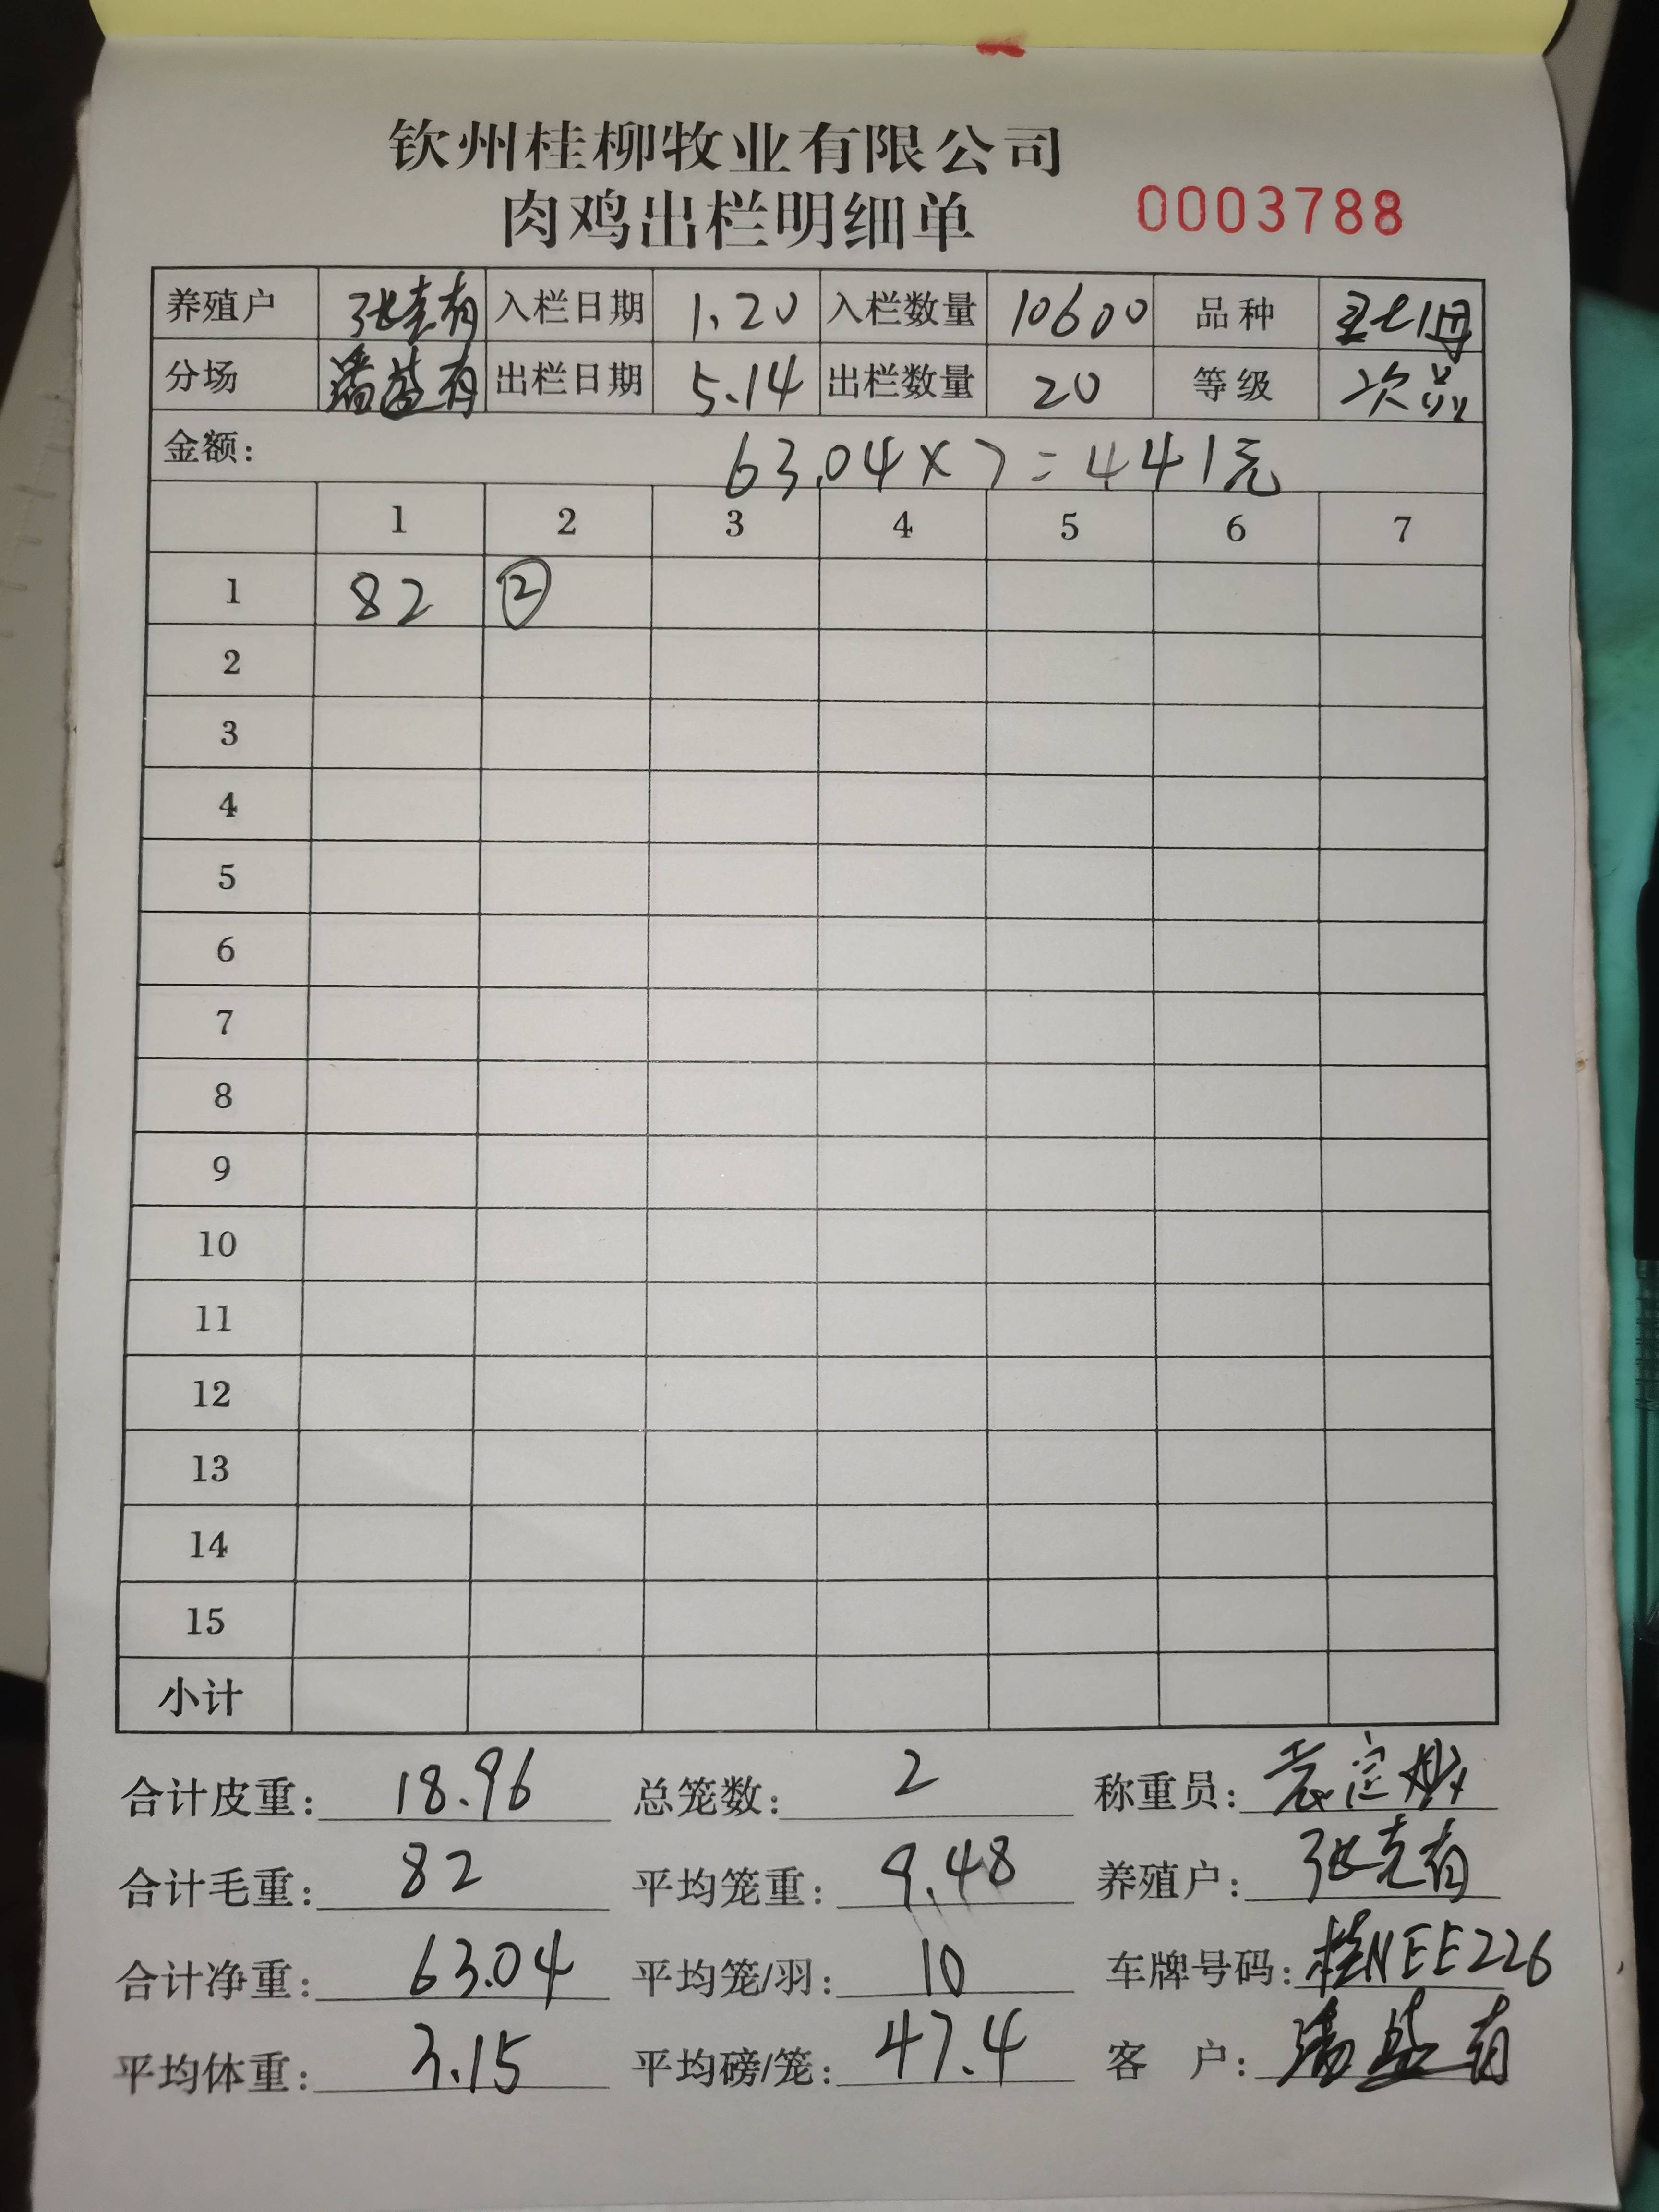 钦州桂柳牧业有限公司
肉鸡出栏明细单 0003788
养殖户 张克有 入栏日期 1.20 入栏数量 10600 品种
分场 出栏日期 5.14 出栏数量 20 等级 次品
金额: 63.04×7=441元
1 2 3 4 5 6 7
1 82 ②
2
3
4
5
6
7
8
9
10
11
12
13
14
15
小计
合计皮重: 18.96 总笼数: 2 称重员:
合计毛重: 82 平均笼重: 9.48 养殖户: 张克有
合计净重: 63.04 平均笼/羽: 10 车牌号码: 桂NEE226
平均体重: 3.15 平均磅/笼: 47.4 客 户: